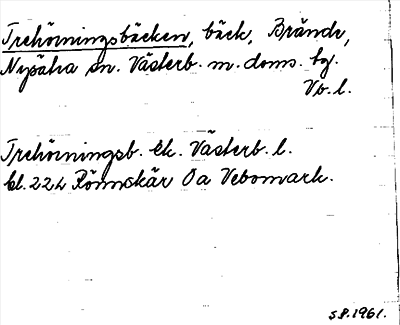 Trehörningsbäcken, bäck, Brände,
Nysätra sn. Västerb. m. doms. hg.
Vb. l.
Trehörningsb. Ek. Västerb. l.
bl. 222 Rönnskär Oa Vebomark.
S.P. 1961.